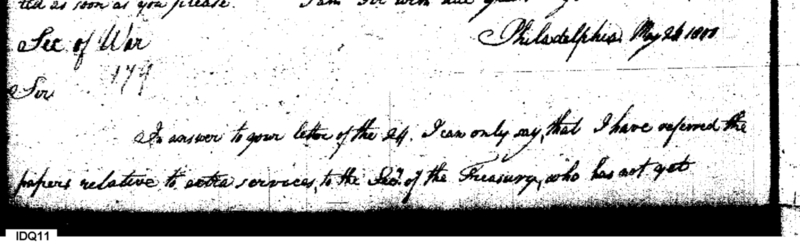 ted as soon as you please. I am Sir with due
Sec. of War
Philadelphia May 26 1800
179
Sir
In answer to your letter of the 24. I can only say, that I have referred the
papers relative to extra services, to the Secy. of the Treasury, who has not yet
IDQ11